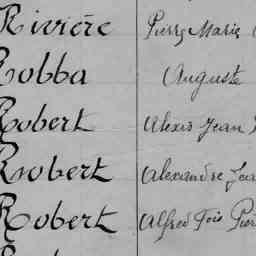 Rivière Pierre Marie
Robba Auguste
Robert Alexis Jean
Robert Alexandre Jea
Robert Alfred Fois Pier